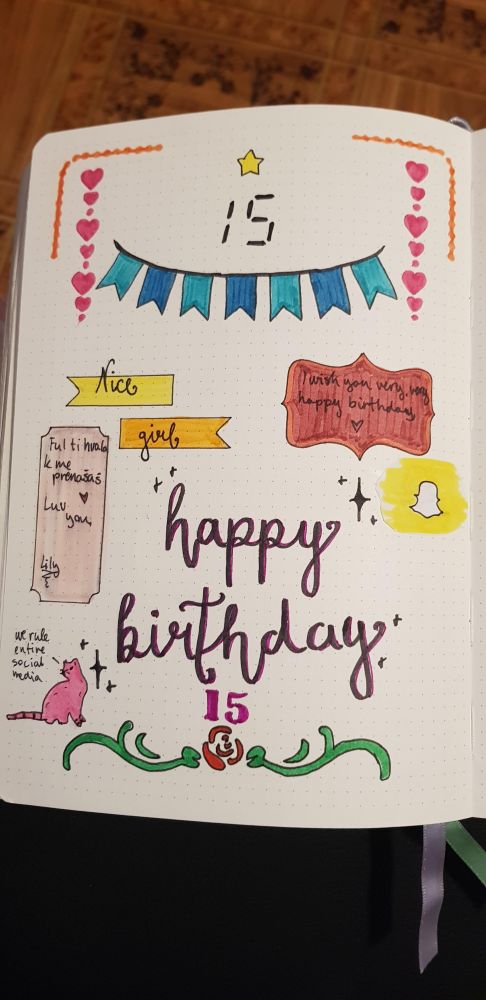 15
Nice
girl
I wish you very, very
happy birthday
Ful ti hvala
k me
prenašaš
Luv
you,
Lily
happy
birthday
we rule
entire
social
media
15